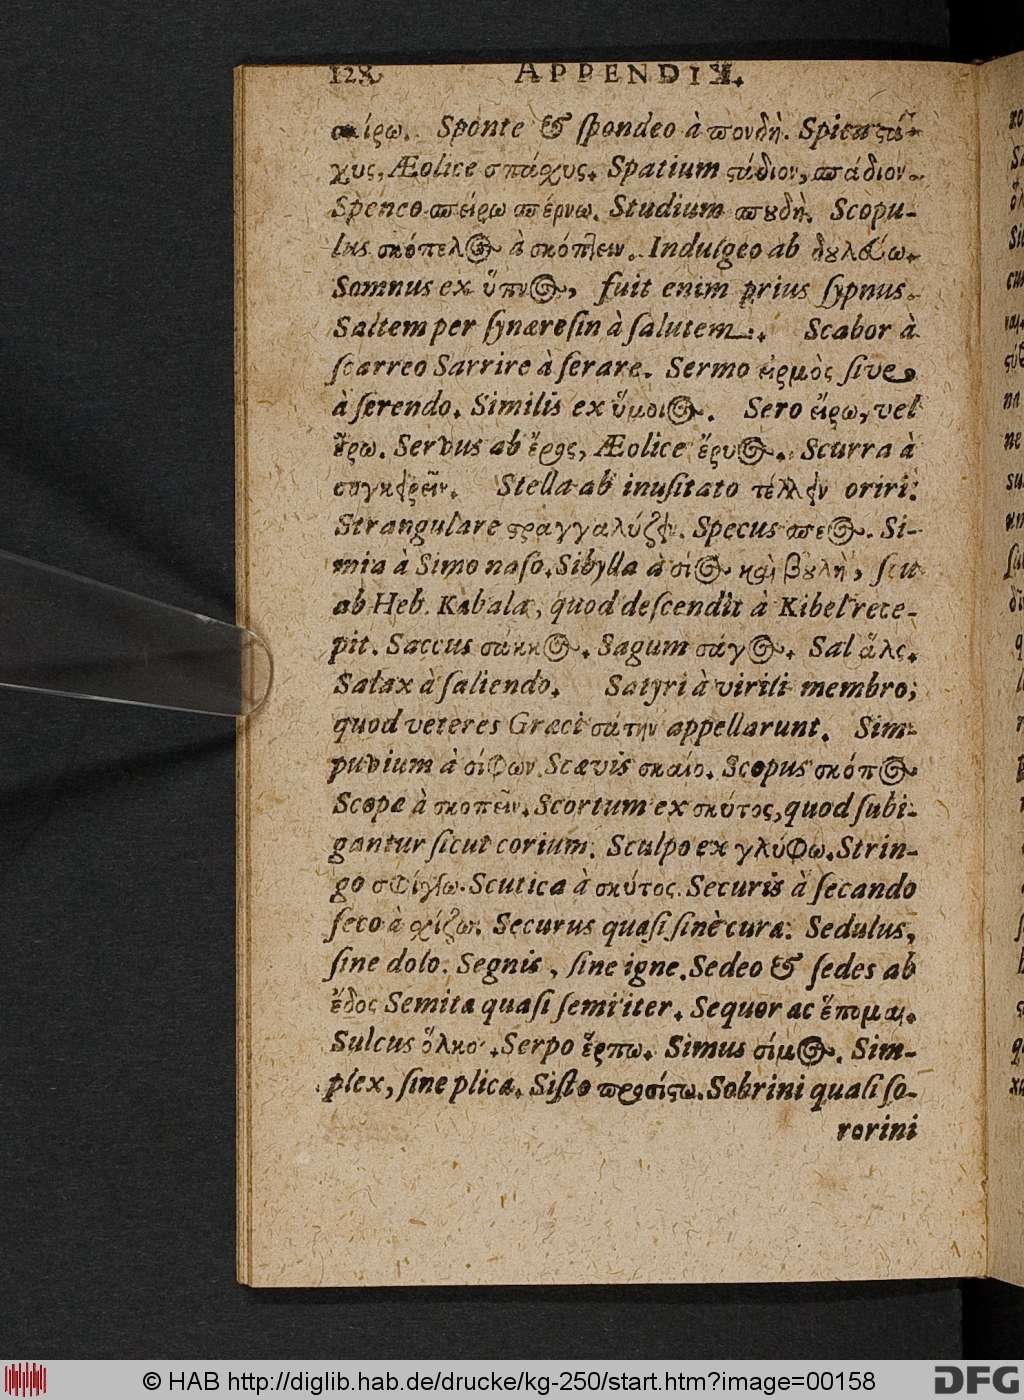 128 APPENDIX.
σπίρω. Sponte & ſpondeo à σπονδὴ. Spica ϛά-
χυς, Æolice σπάχυς. Spatium ϛάδιον, σπάδιον.
σπείρω σπέρνω. Studium σπȣδὴ. Scopu-
lus σκόπελος à σκόπτειν. Indulgeo ab
Somnus ex ὕπνος, fuit enim prius ſypnus.
Saltem per ſynæreſin à ſalutem. Scabor à
ſcarreo Sarrire à ſerare. Sermo εἱρμὸς ſive
à ſerendo. Similis ex Sero εἴρω, vel
Servus ab Æolice Scurra à
Stella ab inuſitato τέλλειν oriri.
Strangulare ϛραγγαλύζειν. Specus σπεος. Si-
mia à Simo naſo. Sibylla à σίος καὶ βȣλὴ, ſeu
ab Heb. Kabala, quod deſcendit à Kibel rece-
pit. Saccus σάκκος. Sagum σάγος. Sal ἅλς.
Salax à ſaliendo. Satyri à virili membro,
quod veteres Græci σάτην appellarunt. Sim-
puvium à σίφων. Scævis σκαίο. Scopus σκόπος
Scopæ à σκοπεῖν. Scortum ex σκύτος, quod ſubi-
gantur ſicut corium. Sculpo ex γλύφω. Strin-
go σφίγγω. Scutica à σκύτος. Securis à ſecando
ſeco à σχίζω. Securus quaſi ſinè cura. Sedulus,
ſine dolo. Segnis, ſine igne. Sedeo & ſedes ab
ἕδος Semita quaſi ſemi iter. Sequor ac ἕπομαι.
Sulcus ὅλκο. Serpo ἕρπω. Simus σίμος. Sim-
plex, ſine plica. Siſto Sobrini quaſi ſo-
rorini
© HAB http://diglib.hab.de/drucke/kg-250/start.htm?image=00158
DFG